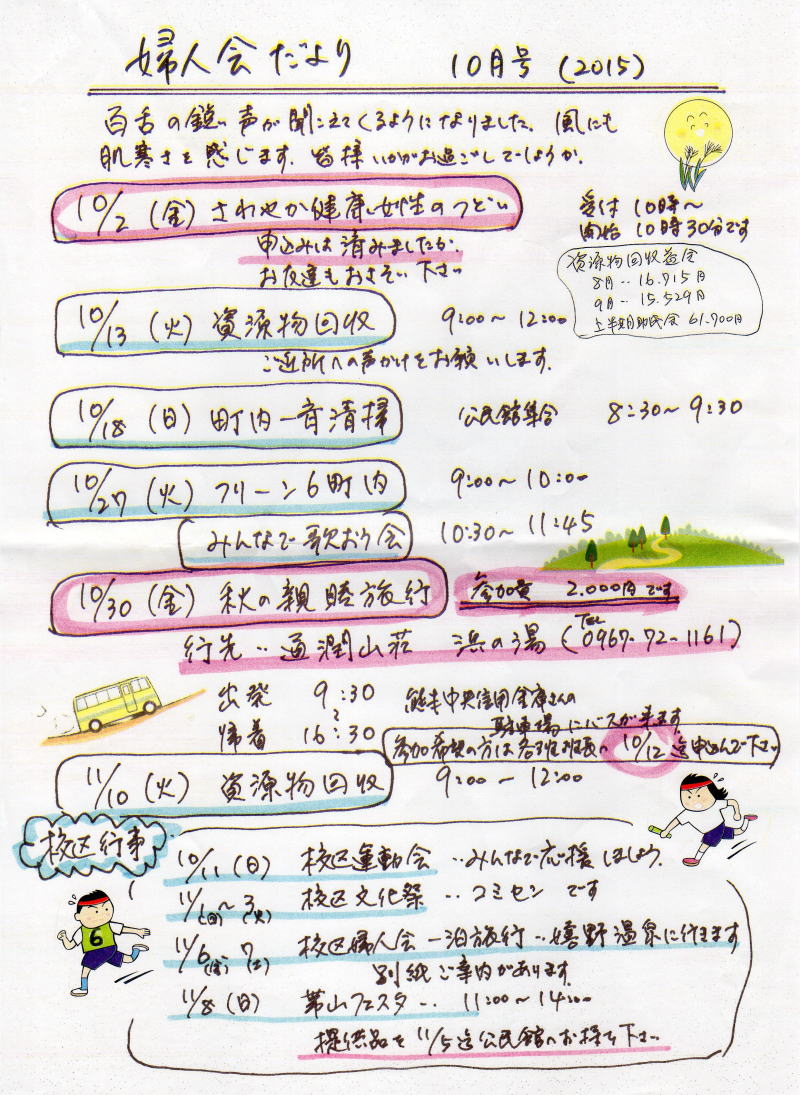 婦人会だより 10月号 (2015)
百舌の鋭い声が聞こえてくるようになりました。風にも
肌寒さを感じます。皆様いかがお過ごしでしょうか。
10/2 (金) さわやか健康女性のつどい
受付 10時〜
開始 10時30分です
申込みは済みましたか
お友達もおさそい下さい
資源物回収益金
8月‥16.715円
9月‥15.529円
上半期助成金 61.700円
10/13 (火) 資源物回収 9:00〜12:00
ご近所への声かけをお願いします。
10/18 (日) 町内一斉清掃 公民館集合 8:30〜9:30
10/27 (火) クリーン6町内 9:00〜10:00
みんなで歌おう会 10:30〜11:45
10/30 (金) 秋の親睦旅行 参加費 2.000円です
行先‥通潤山荘 浜の湯 (Tel 0967-72-1161)
出発 9:30
〜
帰着 16:30
熊本中央信用金庫さんの
駐車場にバスが来ます。
参加希望の方は各班班長へ 10/12迄申込んで下さい
11/10 (火) 資源物回収 9:00〜12:00
校区行事
10/11 (日) 校区運動会 ‥みんなで応援しましょう。
11/1(日)〜3(火) 校区文化祭 ‥コミセンです
6
11/6(金) 7(土) 校区婦人会一泊旅行‥嬉野温泉に行きます
別紙ご案内があります。
11/8 (日) 帯山フェスタ‥ 11:00〜14:00
提供品を 11/5迄公民館へお持ち下さい